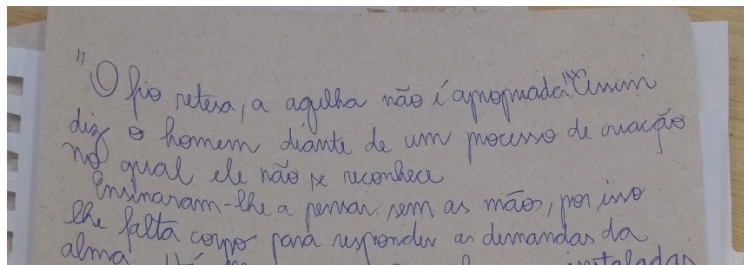 "O fio retesa, a agulha não é apropriada". Assim
diz o homem diante de um processo de criação
no qual ele não se reconhece
Ensinaram-lhe a pensar sem as mãos, por isso
lhe falta corpo para responder as demandas da
alma. instaladas